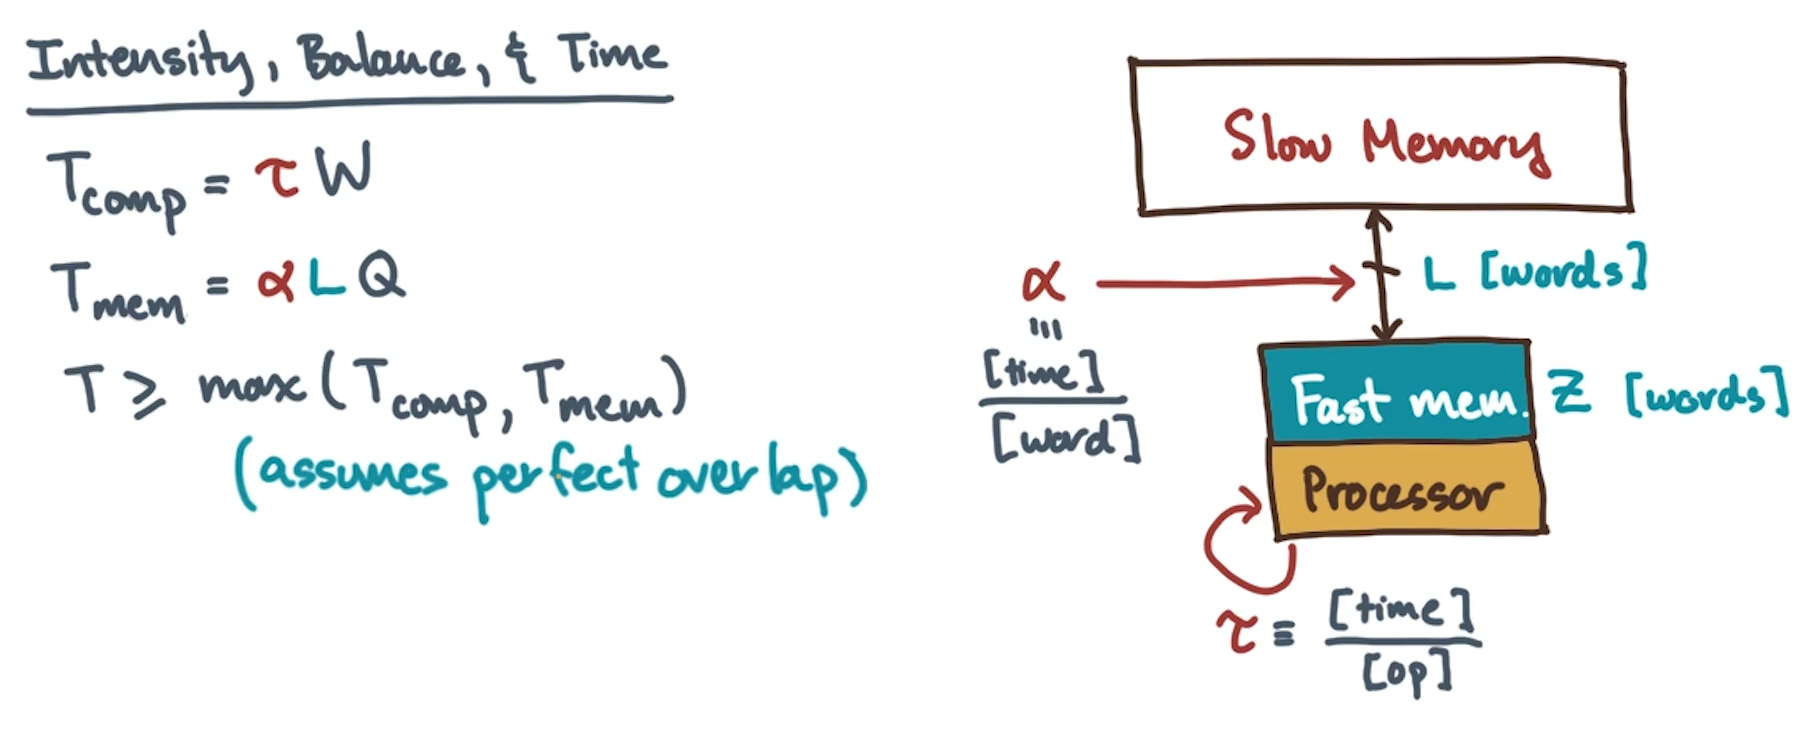 Intensity, Balance, & Time
T_comp = τ W
T_mem = α L Q
T ≥ max (T_comp, T_mem)
(assumes perfect overlap)
Slow Memory
α
≡
[time]
[word]
L [words]
Fast mem.
Z [words]
Processor
τ ≡ [time]
[op]